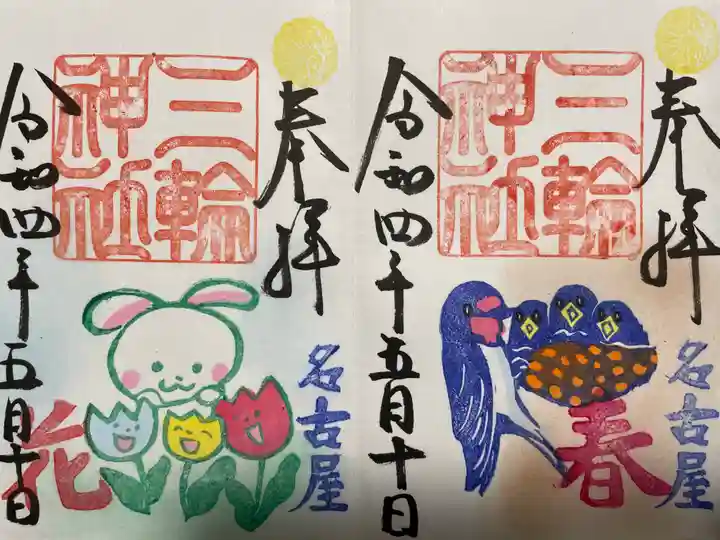 奉拝
三輪
神社
名古屋
花
令和四年五月十日
奉拝
三輪
神社
名古屋
春
令和四年五月十日